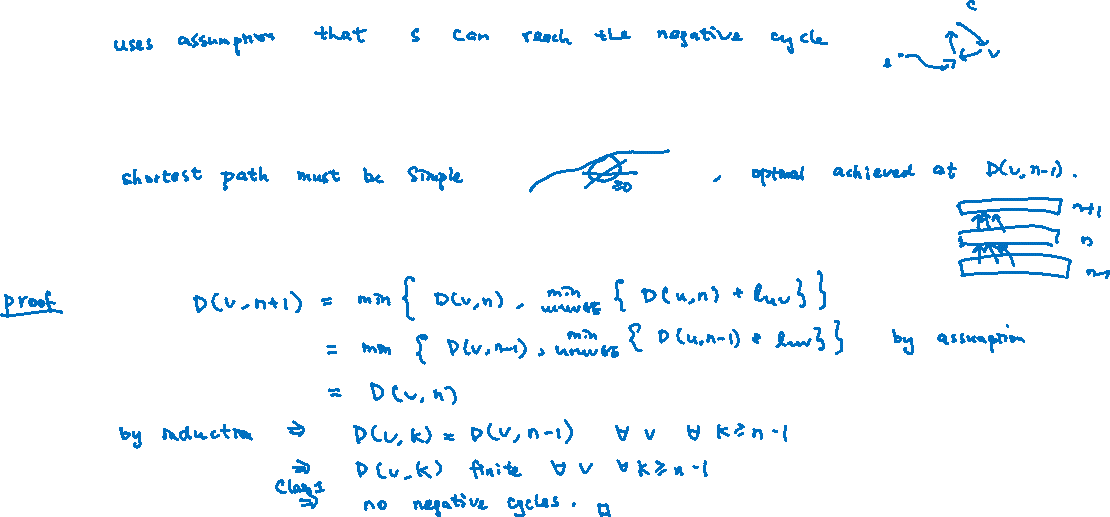 uses assumption that s can reach the negative cycle
C
s
v
shortest path must be simple
≥0
, optimal achieved at D(v,n-1).
n+1
n
n-1
proof D(v,n+1) = min { D(v,n), min u:uv∈E { D(u,n) + l_uv } }
= min { D(v,n-1), min u:uv∈E { D(u,n-1) + l_uv } } by assumption
= D(v,n)
by induction ⇒ D(v,k) = D(v,n-1) ∀ v ∀ k≥n-1
⇒ D(v,k) finite ∀ v ∀ k≥n-1
Claim 1 ⇒ no negative cycles. □